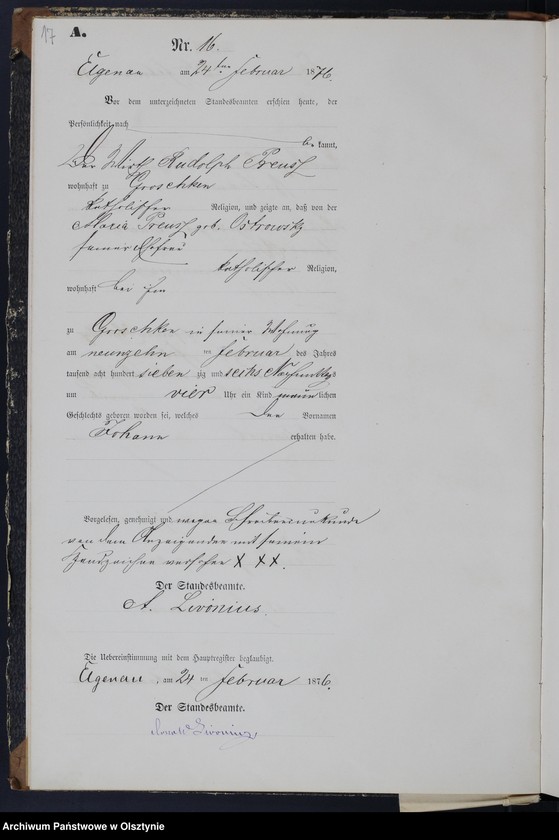 17
A.
Nr. 16.
Elgenau am 24ten Februar 1876.
Vor dem unterzeichneten Standesbeamten erschien heute, der
Persönlichkeit nach
be kannt,
Der Wirth Rudolph Preuss
wohnhaft zu Groschken
katholischer Religion, und zeigte an, daß von der
Maria Preuss geb. Ostrowitz
seiner Ehefrau
katholischer Religion,
wohnhaft bei ihm
zu Groschken in seiner Wohnung
am neunzehn ten Februar des Jahres
tausend acht hundert sieben zig und sechs Nachmittags
um vier Uhr ein Kind männlichen
Geschlechts geboren worden sei, welches den Vornamen
Johann erhalten habe.
Vorgelesen, genehmigt und wegen Schreibensunkunde
von dem Anzeigenden mit seinem
Handzeichen versehen X XX.
Der Standesbeamte.
A. Livonius.
Die Uebereinstimmung mit dem Hauptregister beglaubigt.
Elgenau, am 24 ten Februar 1876.
Der Standesbeamte.
Livonius
Archiwum Państwowe w Olsztynie